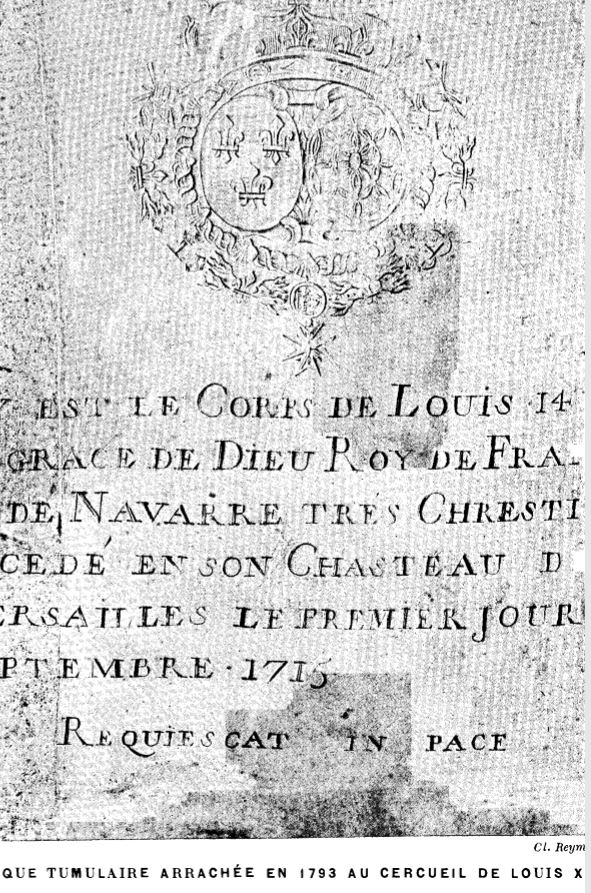 EST LE CORPS DE LOUIS 14
GRACE DE DIEU ROY DE FRA
DE NAVARRE TRES CHRESTI
CEDÉ EN SON CHASTEAU D
ERSAILLES LE PREMIER JOUR
PTEMBRE · 1715
REQUIESCAT IN PACE
Cl. Reym
QUE TUMULAIRE ARRACHÉE EN 1793 AU CERCUEIL DE LOUIS X